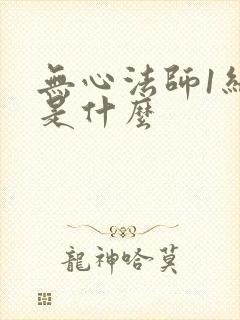 無心法師1
是什麼
龍神哈莫